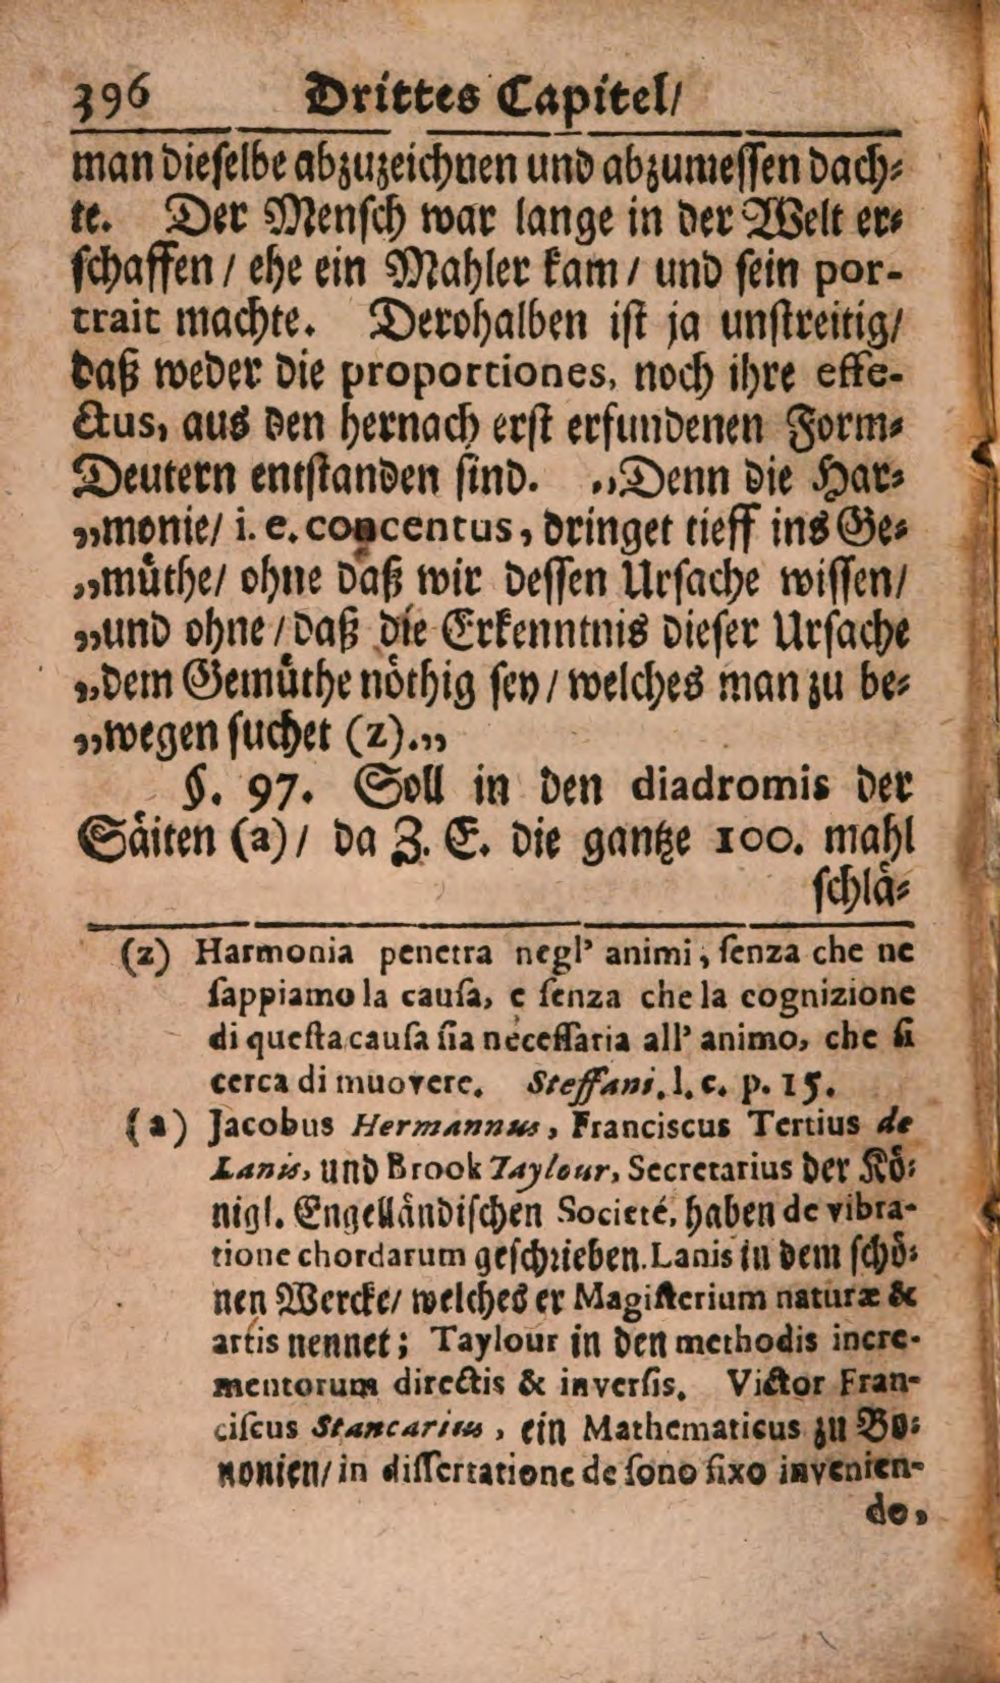 396 Drittes Capitel/
man dieselbe abzuzeichnen und abzumessen dach⸗
te. Der Mensch war lange in der Welt er⸗
schaffen / ehe ein Mahler kam / und sein por-
trait machte. Derohalben ist ja unstreitig/
daß weder die proportiones, noch ihre effe-
ctus, aus den hernach erst erfundenen Form⸗
Deutern entstanden sind. „Denn die Har⸗
„monie/ i. e. concentus, dringet tieff ins Ge⸗
„müthe/ ohne daß wir dessen Ursache wissen/
„und ohne / daß die Erkenntnis dieser Ursache
„dem Gemüthe nöthig sey / welches man zu be⸗
„wegen suchet (z).„
§. 97. Soll in den diadromis der
Säiten (a) / da Z. E. die gantze 100. mahl
schlä⸗
(z) Harmonia penetra negl' animi, ſenza che ne
ſappiamo la cauſa, e ſenza che la cognizione
di queſta cauſa ſia neceſſaria all' animo, che ſi
cerca di muovere. Steffani. l. c. p. 15.
(a) Jacobus Hermannus, Franciscus Tertius de
Lanis, und Brook Taylour, Secretarius der Kö⸗
nigl. Engelländischen Societé, haben de vibra-
tione chordarum geschrieben. Lanis in dem schö⸗
nen Wercke/ welches er Magiſterium naturæ &
artis nennet; Taylour in den methodis incre-
mentorum directis & inverſis. Victor Fran-
ciſcus Stancarius, ein Mathematicus zu Bo⸗
nonien/ in diſſertatione de ſono fixo invenien-
do,